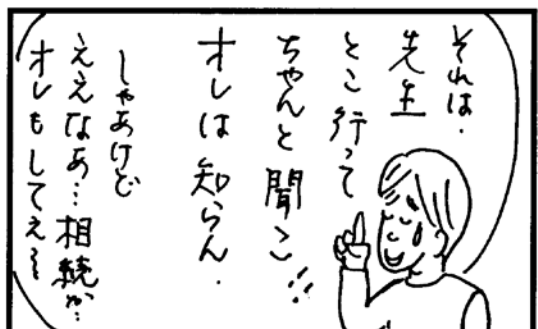 それは.
先生
とこ行って
ちゃんと聞こ!!
オレは知らん.
しゃあけど
ええなぁ…相続か…
オレもしてえ〜